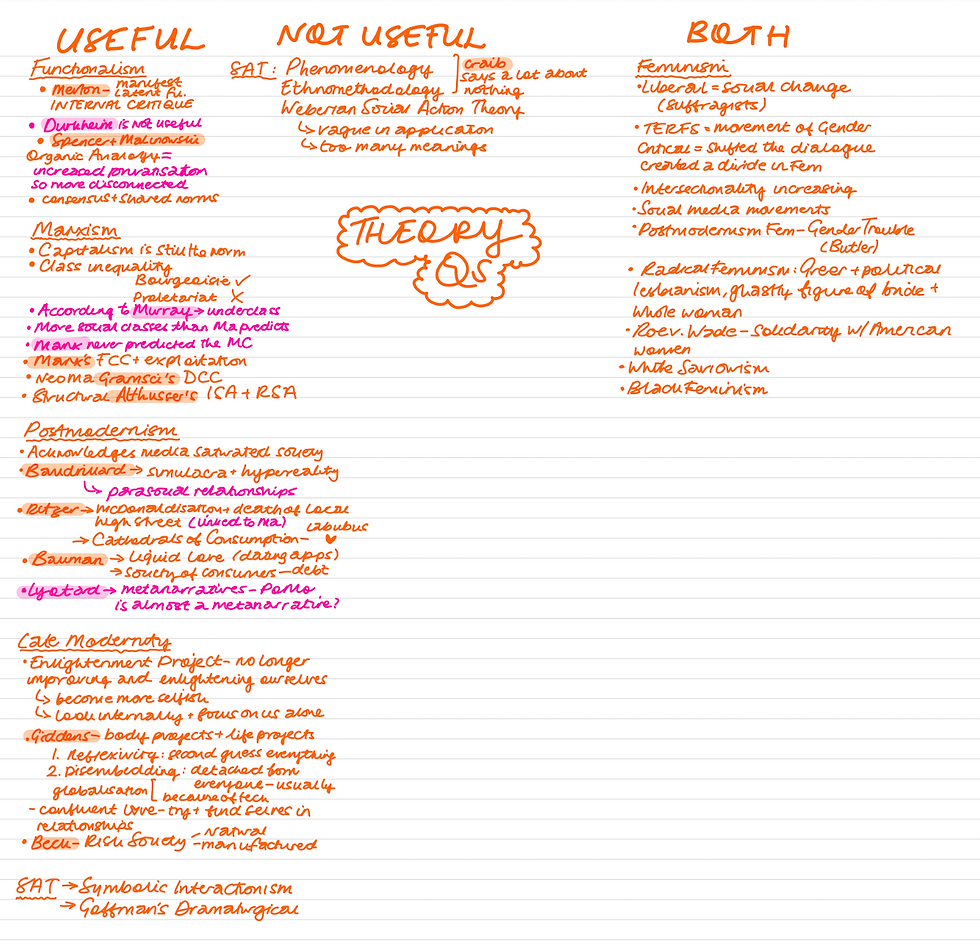 USEFUL
Functionalism
• Merton- manifest
latent fu.
INTERNAL CRITIQUE
• Durkheim is not useful
• Spencer + Malinowski
Organic Analogy =
increased privatisation
so more disconnected
• consensus + shared norms
Marxism
• Capitalism is still the norm
• Class inequality
Bourgeoisie ✓
Proletariat X
• According to Murray → underclass
• More social classes than Ma predicts
• Marx never predicted the MC
• Marx's FCC + exploitation
• Neo ma Gramsci's DCC
• Structural Althusser's ISA + RSA
Postmodernism
• Acknowledges media saturated society
• Baudrillard → simulacra + hypereality
↳ parasocial relationships
• Ritzer → McDonaldisation + death of local
high street (linked to ma)
→ Cathedrals of Consumption- labubus ♥
• Bauman → Liquid Love (dating apps)
→ society of consumers - debt
• Lyotard → metanarratives - PoMo
is almost a metanarrative?
Late Modernity
• Enlightenment Project- no longer
improving and enlightening ourselves
↳ become more selfish
↳ look internally + focus on us alone
• Giddens- body projects + life projects
1. Reflexivity: second guess everything
2. Disembedding: detached from
everyone - usually
globalisation [ because of tech
- confluent love - try + find selves in
relationships
• Beck- Risk Society - Natural
- manufactured
SAT → Symbolic Interactionism
→ Goffman's Dramaturgical
NOT USEFUL
SAT: Phenomenology
Ethnomethodology
] Craib
says a lot about
nothing
Weberian Social Action Theory
↳ vague in application
↳ too many meanings
THEORY
QS
BOTH
Feminism
• Liberal = social change
(suffragists)
• TERFS = movement of Gender
Critical = shifted the dialogue
created a divide in Fem
• Intersectionality increasing
• Social media movements
• Postmodernism Fem - Gender Trouble
(Butler)
• Radical Feminism: Greer + political
lesbianism, ghastly figure of bride +
whole woman
• Roe v. Wade - Solidarity w/ American
women
• White Saviourism
• Black Feminism